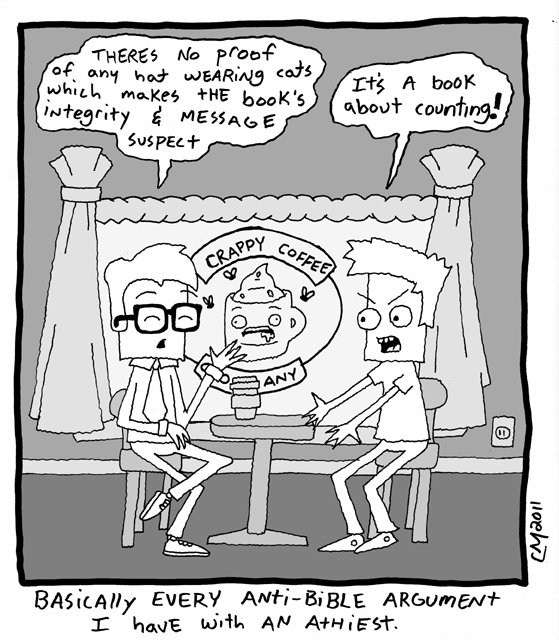 THERES NO PROOF
of any hat WEARING cats
which makes THE book's
integrity & MESSAGE
SUSPECT
It's A book
about counting!
CRAPPY COFFEE
ANY
CM2011
BASICALLY EVERY ANTI-BIBLE ARGUMENT
I have with AN AThiEST.